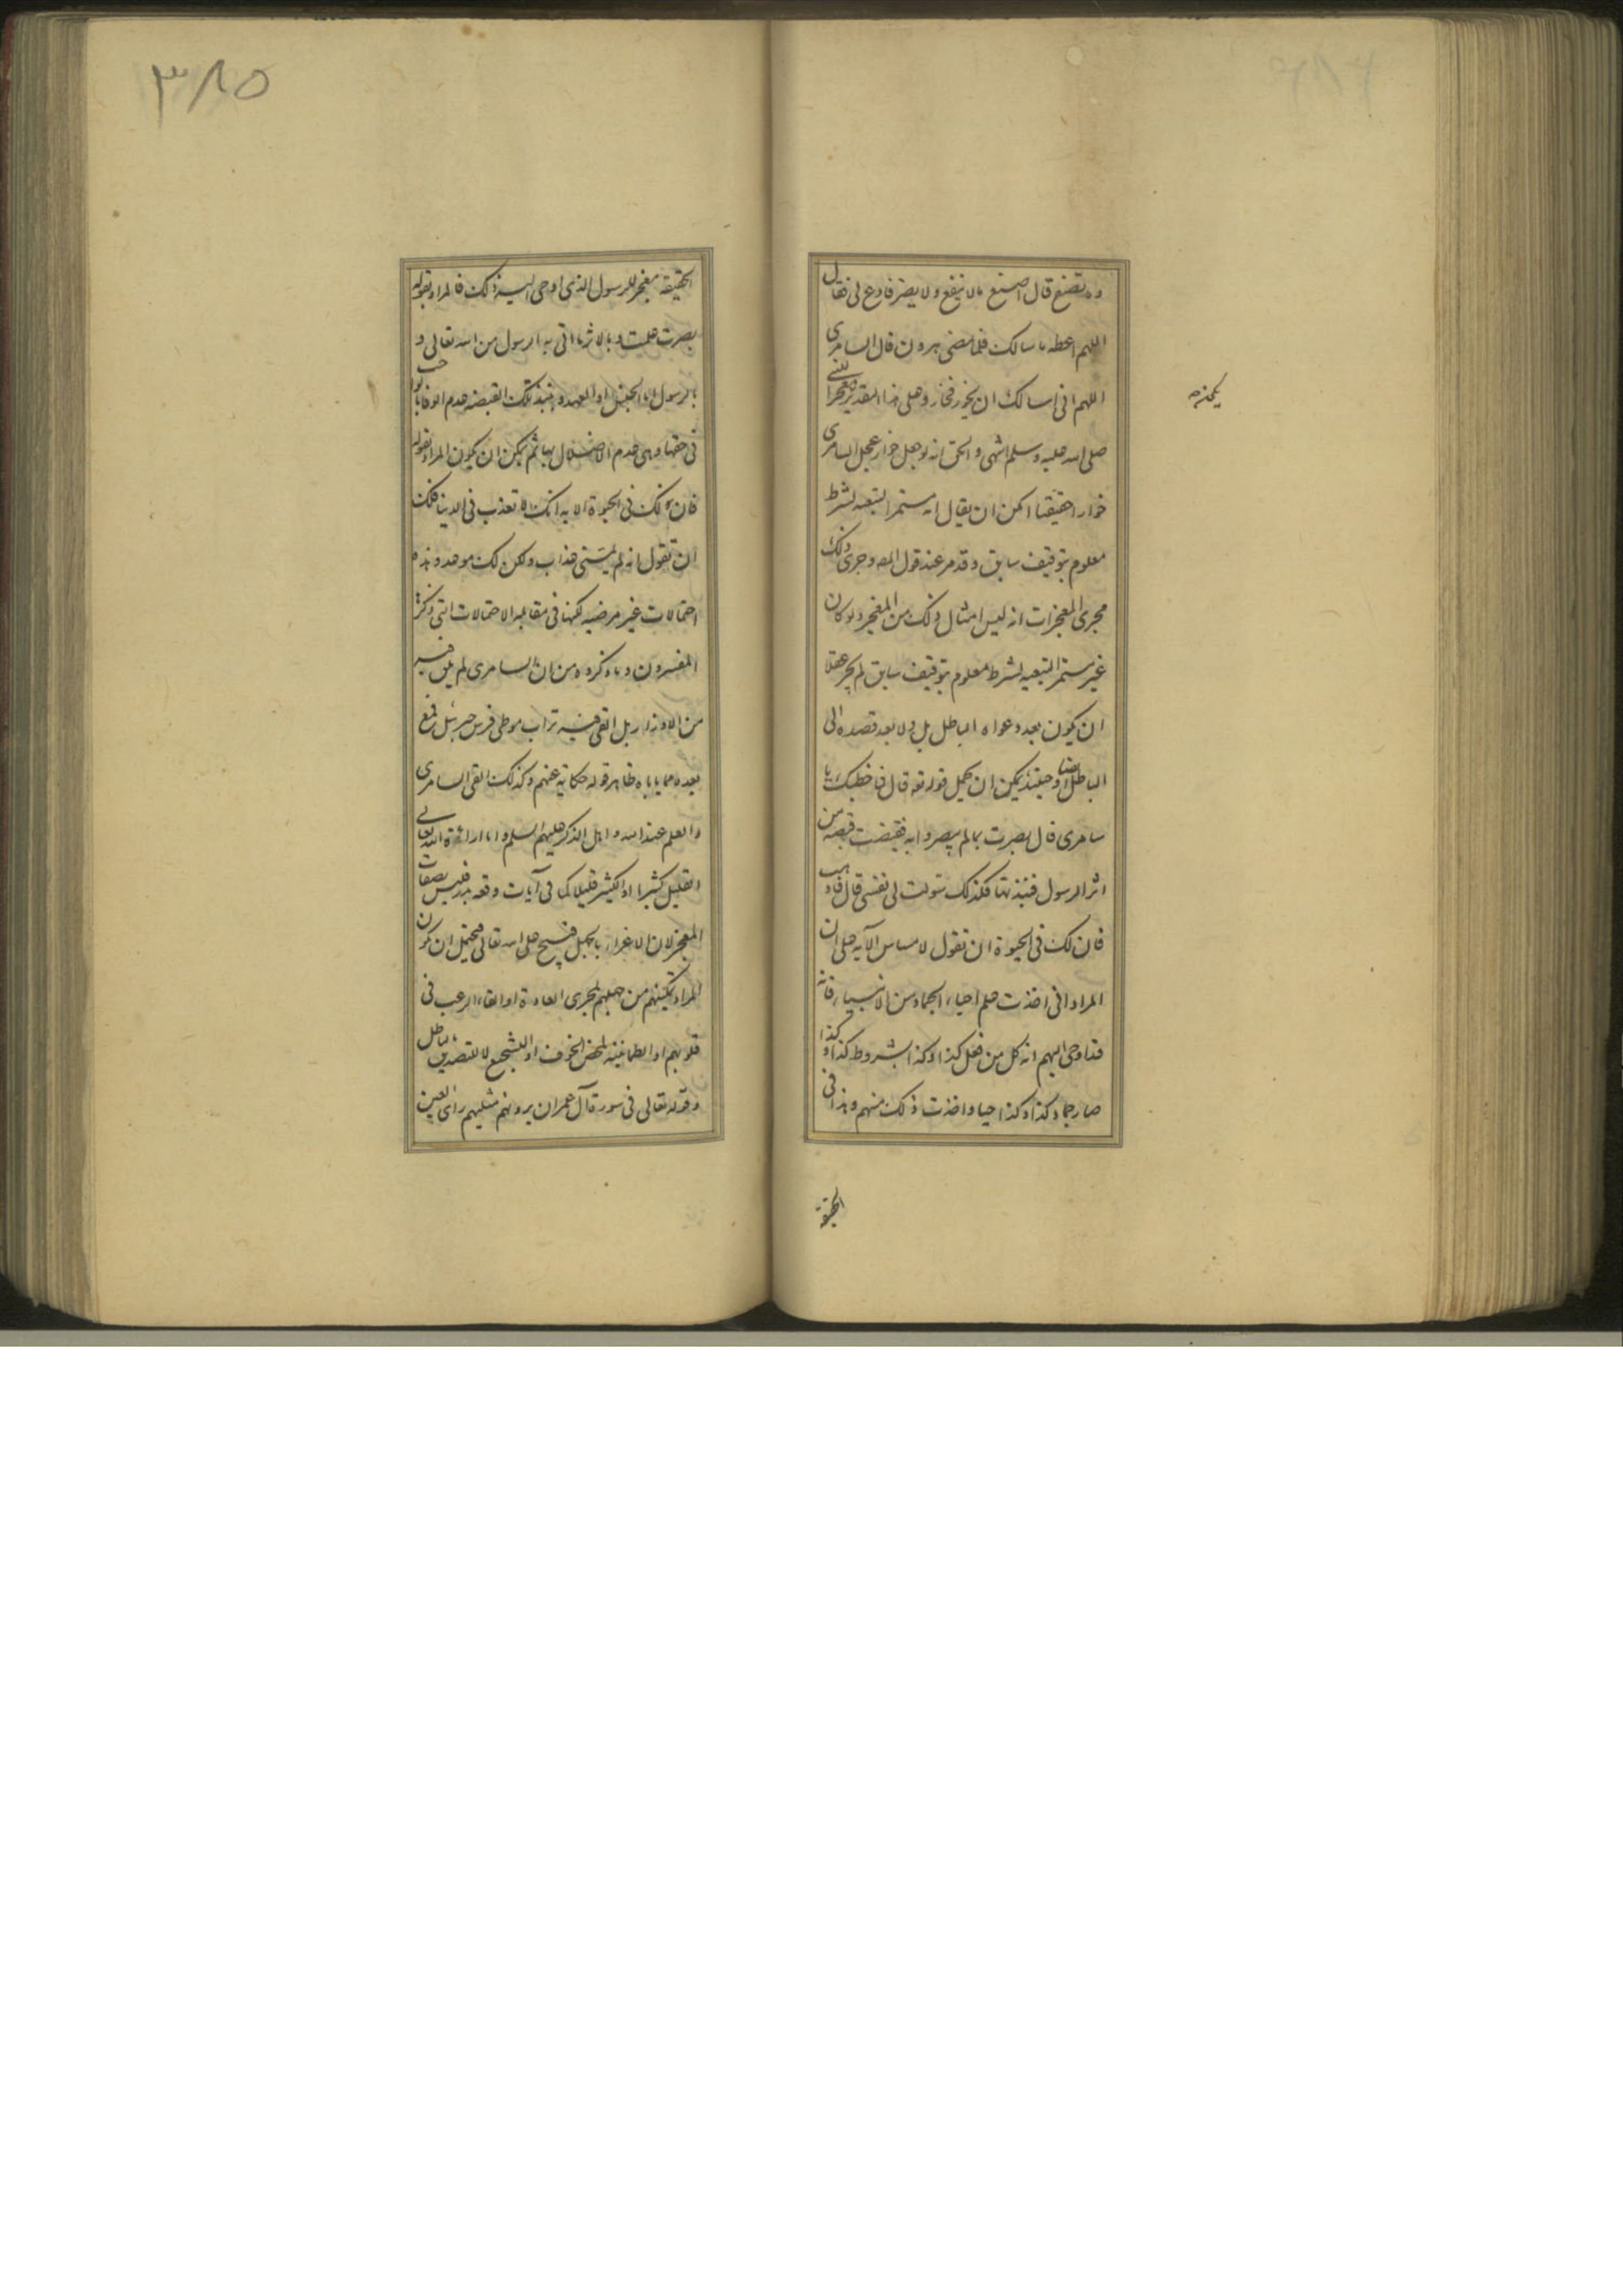 وما تصنع قال اصنع مالا ينفع ولا يضر فادع لى فقال
اللهم اعطه ما سالك فلما مضى هرون قال السامرى
اللهم انى اسالك ان يخور فخار وعلى هذا التقدير معجزا للنبى
صلى الله عليه وسلم انتهى والحق انه لو جعل خوار عجل السامرى
خوارا حقيقتا امكن ان يقال انه مستمر التبعيه لشرط
معلوم بتوقيف سابق وقد مر عند قول المصه وجرى ذلك
مجرى المعجزات انه ليس امثال ذلك من المعجز ولو كان
غير مستمر التبعيه لشرط معلوم بتوقيف سابق لم يجز عقلا
ان يكون بعد دعواه الباطل بل ولا بعد قصده الى
الباطل ايضا وحينئذ يمكن ان يحمل قوله تعه قال فما خطبك يا
سامرى قال بصرت بما لم يبصروا به فقبضت قبصه من
اثر الرسول فنبذتها فكذلك سولت لى نفسى قال فاذهب
فان لك فى الحيوة ان تقول لا مساس الآيه على ان
المراد انى اخذت علم احياء الجماد من الانبياء فانه
قد اوحى اليهم انه كل من فعل كذا وكذا بشروط كذا وكذا
صار جماد كذا وكذا حيا واخذت ذلك منهم وهذا فى
يمكنه
الحقيقة
٣٨٥
الحقيقه معجز للرسول الذى اوحى اليه ذلك فالمراد بقوله
بصرت علمت وبالاثر ما اتى به الرسول من الله تعالى و
بالرسول اما الجنس او العهد وبنبذ تلك القبضه عدم الوفا بما وجب
فى حقها وهى عدم الاضلال بها ثم يمكن ان يكون المراد بقوله
فان لك فى الحيوة الايه انك لا تعذب فى الدنيا فلك
ان تقول انه لم يمسنى عذاب ولكن لك موعد وهذه
احتمالات غير مرضيه لكنها فى مقابله الاحتمالات التى ذكرها
المفسرون وما ذكروه من ان السامرى لم يلق فيه
من الاوزار بل القى فيه تراب موطى فرس جبرئيل فمع
بعده مما ياباه ظاهر قوله حكاية عنهم وكذلك القى السامرى
والعلم عند الله واهل الذكر عليهم السلم واما اراءة الله تعالى
القليل كثيرا او الكثير قليلا كما فى آيات وقعه بدر فليس بصفات
المعجز لان الاغراء بالجهل قبيح على الله تعالى فيحتمل ان يكون
المراد تمكينهم من جهلهم لمجرى العادة او القاء الرعب فى
قلوبهم او الطمانينه لمحض الخوف او التشجع لا للتصديق بباطل
وقوله تعالى فى سورة آل عمران يرونهم مثليهم راى العين